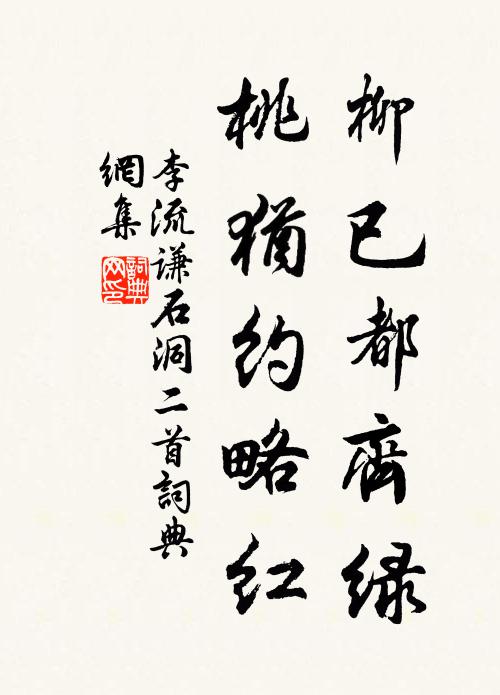 柳已都齊綠
桃猶約略紅
李流謙石洞二首詞典
網集
詞典
网印